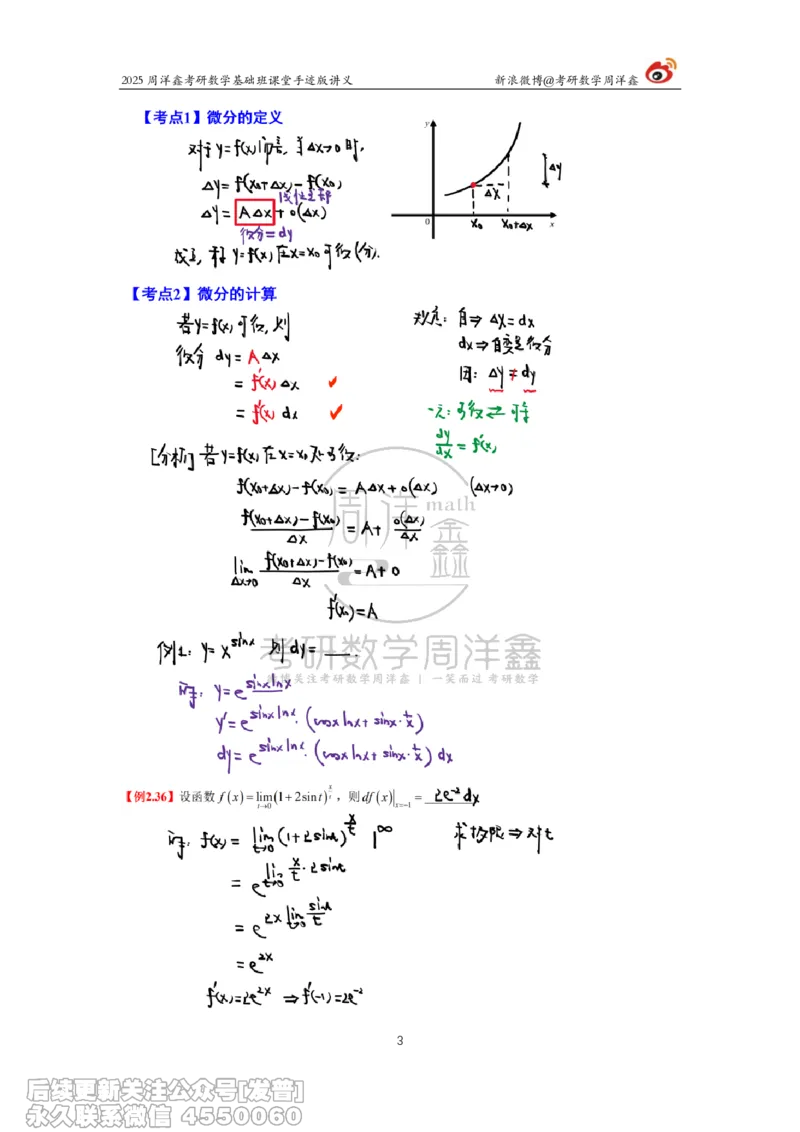 2025 周洋鑫考研数学基础班课堂手迹版讲义 新浪微博@考研数学周洋鑫
【考点1】微分的定义
对于y=f(x)而言,当Δx→0时,
Δy=f(x₀+Δx)-f(x₀)
线性主部
Δy=AΔx+o(Δx)
微分=dy
成立,称y=f(x)在x=x₀可微(分).
y
Δy
Δx
0 x₀ x₀+Δx x
【考点2】微分的计算
若y=f(x)可微,则
微分 dy=AΔx
=f'(x)Δx ✓
=f'(x)dx ✓
观点:自⇒Δx=dx
dx⇒自变量微分
因:Δy≠dy
一元:可微⇄可导
dy/dx=f'(x)
[分析]若y=f(x)在x=x₀处可微:
f(x₀+Δx)-f(x₀)=AΔx+o(Δx) (Δx→0)
(f(x₀+Δx)-f(x₀))/Δx=A+o(Δx)/Δx
lim Δx→0 (f(x₀+Δx)-f(x₀))/Δx=A+0
f'(x₀)=A
周洋鑫 math
例1:y=x^sinx 则dy=___.
考研数学周洋鑫
微博关注考研数学周洋鑫 | 一笑而过 考研数学
解:y=e^(sinxlnx)
y'=e^(sinxlnx)·(cosxlnx+sinx·1/x)
dy=e^(sinxlnx)·(cosxlnx+sinx·1/x)dx
【例2.36】设函数 f(x)=lim t→0 (1+2sint)^(x/t),则df(x)|x=-1 = 2e⁻²dx
解:f(x)=lim t→0 (1+2sint)^(x/t) 1^∞ 求极限⇒对t
=e^(lim t→0 x/t·2sint)
=e^(2x lim t→0 sint/t)
=e^(2x)
f'(x)=2e^(2x) ⇒f'(-1)=2e⁻²
3
后续更新关注公众号[发普]
永久联系微信 4550060